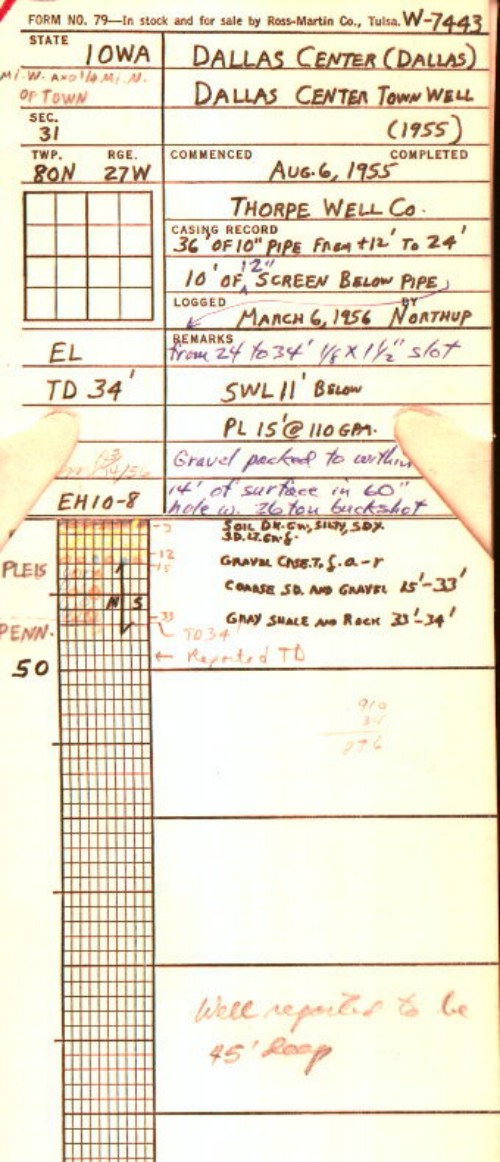 FORM NO. 79—In stock and for sale by Ross-Martin Co., Tulsa. W-7443
STATE IOWA
DALLAS CENTER (DALLAS)
MI. W. AND 1/4 MI. N.
OF TOWN
DALLAS CENTER TOWN WELL
SEC. 31
(1955)
TWP. RGE.
80N 27W
COMMENCED COMPLETED
AUG. 6, 1955
THORPE WELL CO.
CASING RECORD
36' OF 10" PIPE FROM +12' TO 24'
12"
10' OF SCREEN BELOW PIPE
LOGGED BY
MARCH 6, 1956 NORTHUP
REMARKS
from 24 to 34' 1/8 X 1 1/2" slot
EL
TD 34'
SWL 11' BELOW
PL 15' @ 110 GPM.
Gravel packed to within
14' of surface in 60"
hole w. 26 ton buckshot
EH10-8
SOIL DK. GN, SILTY, SDY
SD. LT. GN. f.
12
GRAVEL f. a-r
15
PLEIS
COARSE SD. AND GRAVEL 15'-33'
N S
GRAY SHALE AND ROCK 33'-34'
33
PENN.
TD 34'
← Reported TD
50
910
34
876
Well reported to be
45' deep